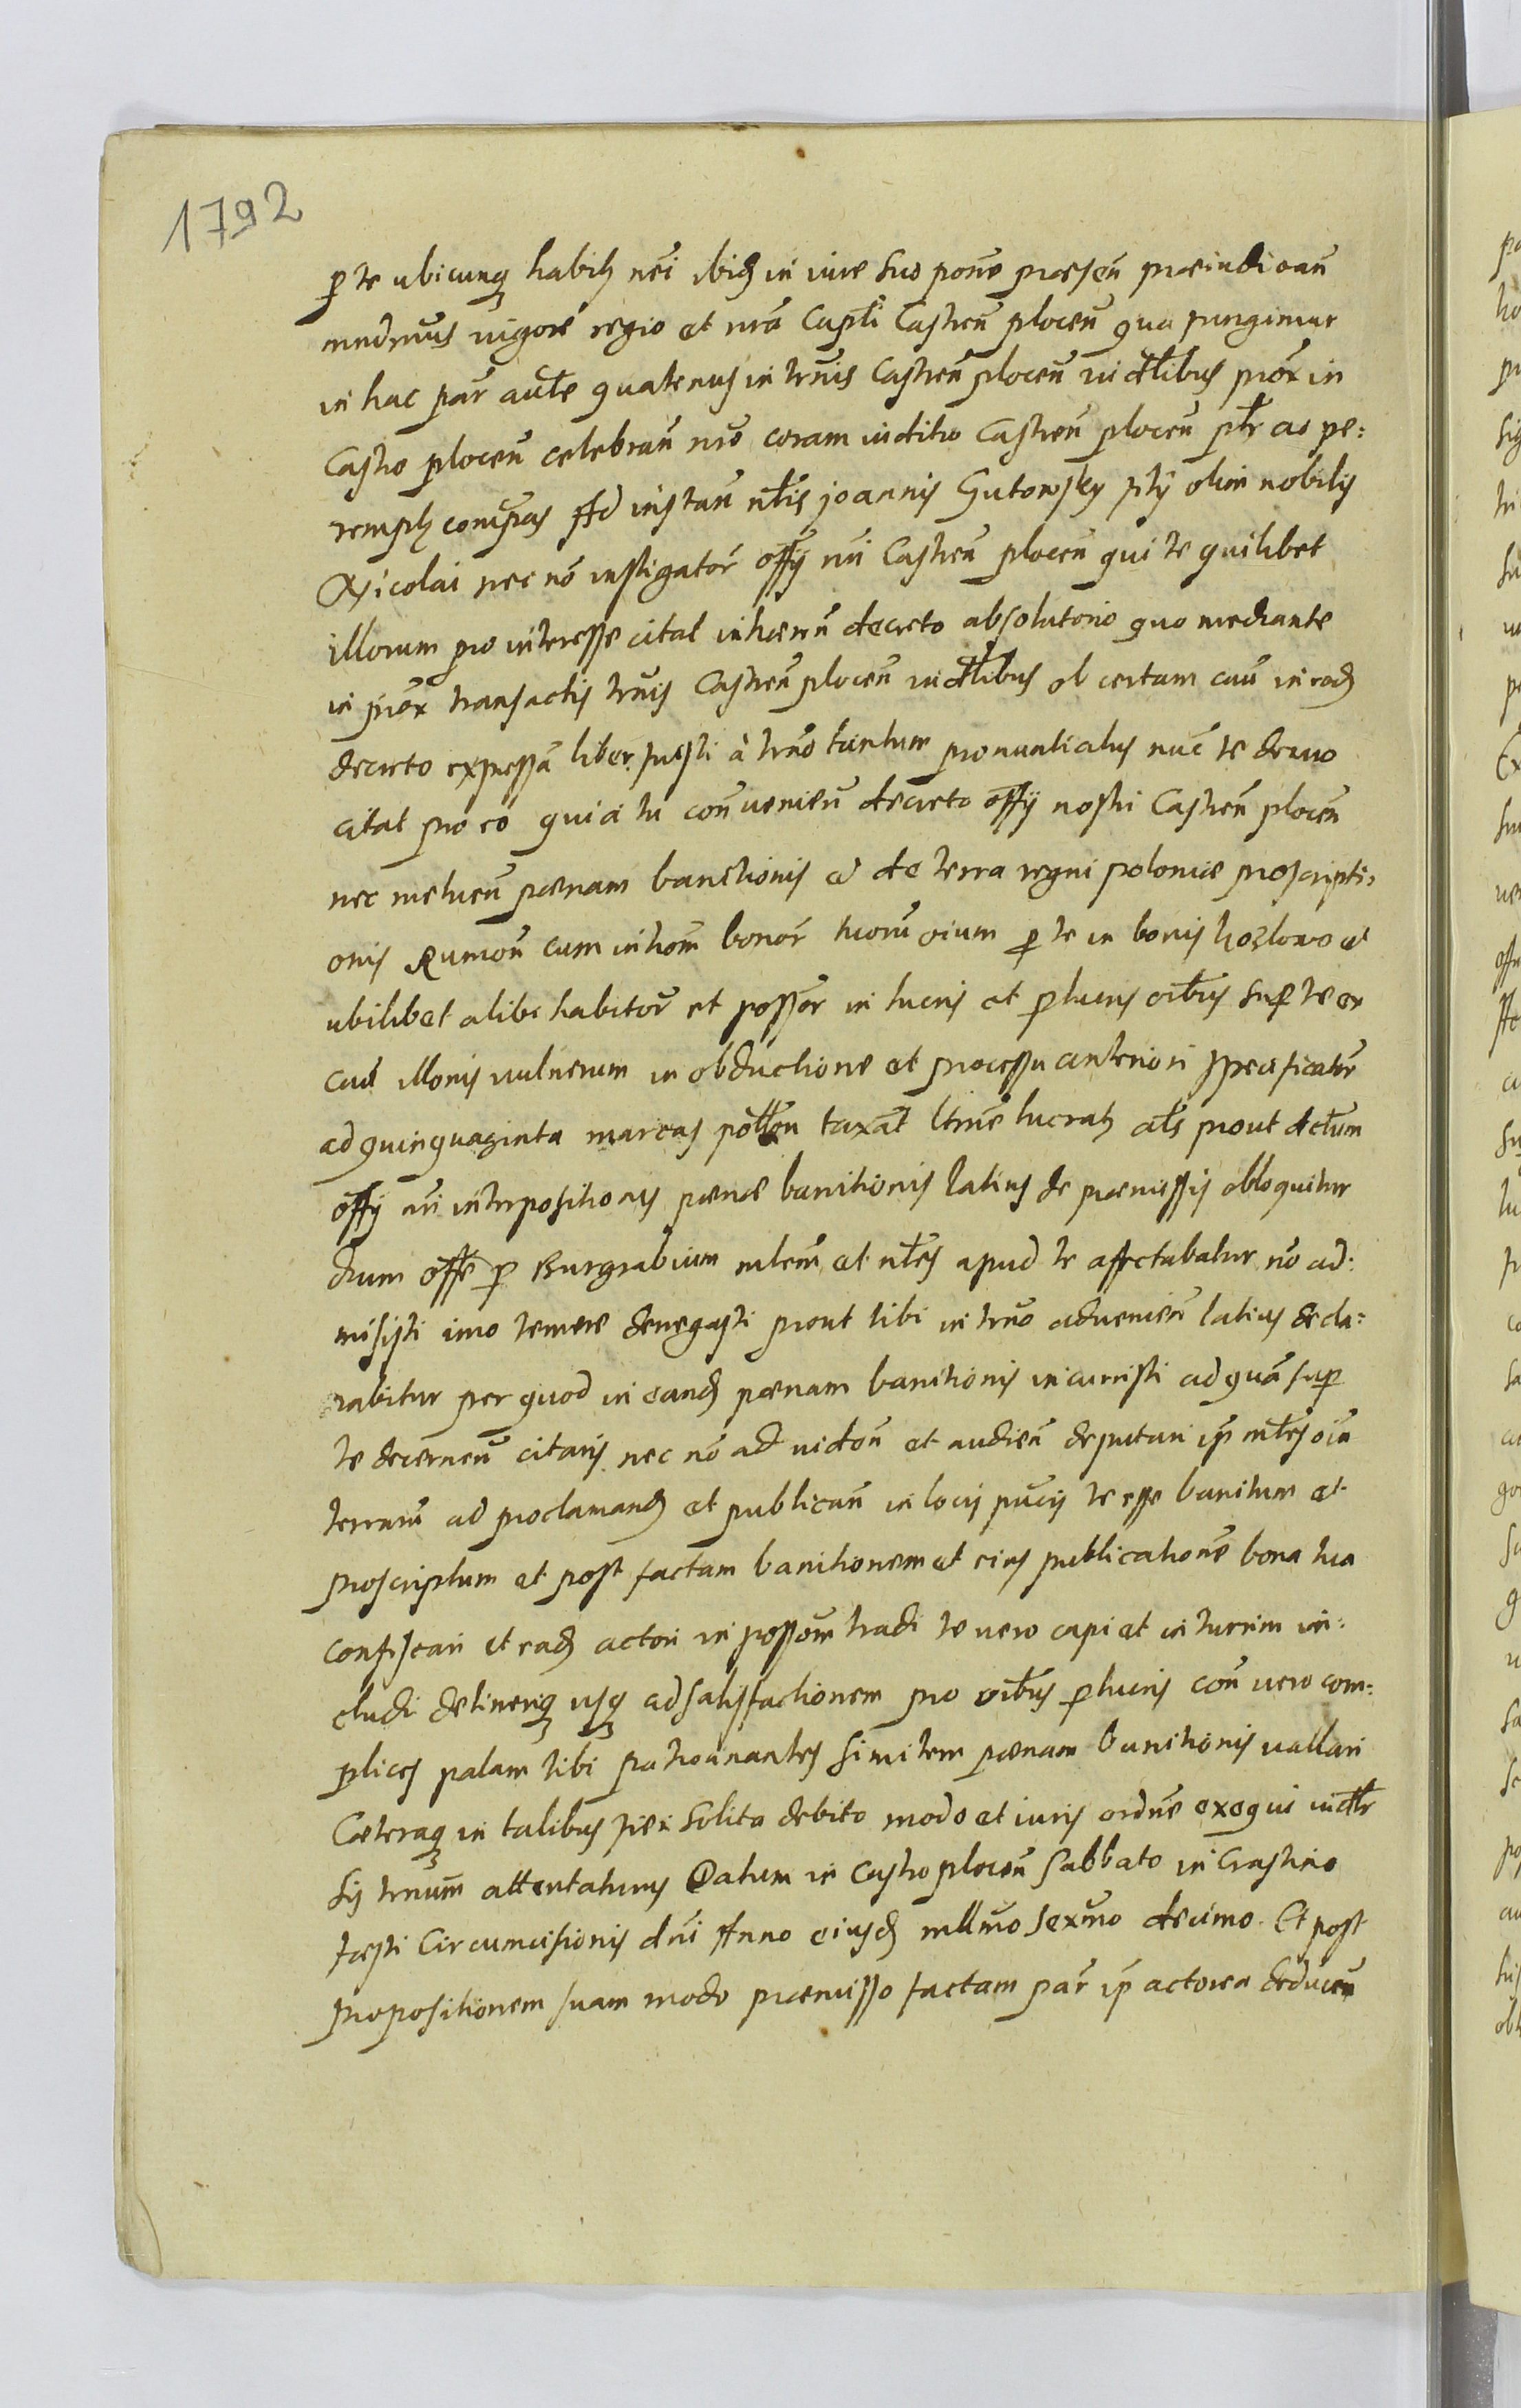 1792
p te ubicunq habitꝫ nri ibidꝫ in iure suo pone præsen præiudican
mndmus uigore regio et nra Captli Castren plocen qua fungimur
in hac par aucte quatenus in trnis Castren plocen iudtlibus prox in
Castro plocen celebran nro coram iuditio Castren plocen pltr ac pe:
remptꝫ compas Ad instan nblis joannis Gutowsky filij olim nobilis
Nicolai nec nō instigator offij nri Castren plocen qui te quilibet
illorum pro interesse citat inhæren decreto absolutorio quo mediante
in prox transactis trnis Castren plocen iudtlibus ob certam cam in eodꝫ
decreto expressā liber fuisti à trno tantum pronuntiatus nūc te denuo
citat pro eo quia tu conuenien decreto offij nostri Castren plocen
nec metuen pœnam banitionis et de terra regni poloniæ proscripti,
onis Rumon cum introm bonor tuorū oium p te in bonis kozłowo et
ubilibet alibi habitor et possor in lucris et plucris oibus sup te ex
cau illonis uulnerum in obductione et processu anteriori specificator
ad quinquaginta marcas pollen taxat ltime lucratꝫ als prout dctum
offij nri interpositionis pœnæ banitionis latius de præmissis obloquitur
dum offe p Burgrabium mlem et nbles apud te affectabatur nō ad:
misisti imo temere denegasti prout tibi in trno aduenien latius decla:
rabitur per quod in eandꝫ pœnam banitionis incurristi ad quā sup
te decernen citaris nec nō ad uidon et audien deputari ip mlesꝫ oim
terrarū ad proclamandꝫ et publican in locis pucis te esse banitum et
proscriptum et post factam banitionem et eius publicationē bona tua
confiscari et eadꝫ actori in possom tradi te uero capi et in turrim in:
cludi detineriq usq ad satisfactionem pro oibus plucris con uero com:
plices palam tibi patrocinantes similem pœnam banitionis uallari
Cæteraq in talibus fieri solita debito modo et iuris ordne exequi uidtr
sis trnum attentaturus Datum in Castro plocen Sabbato in Crastino
fæsti Circumcisionis dni Anno eiusdꝫ mllmo sexmo decimo. Et post
propositionem suam modo præmisso factam par ip actorea deducen